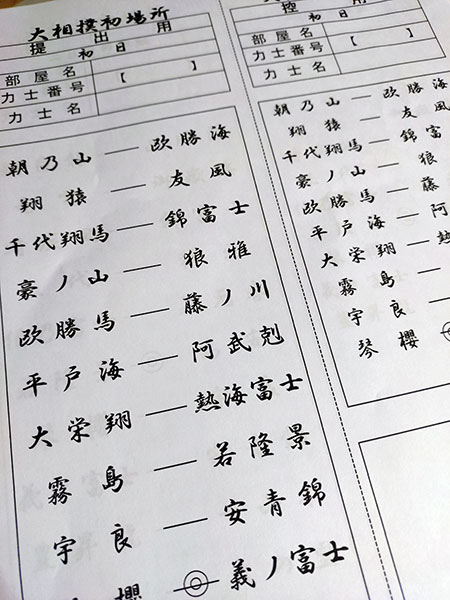 大相撲初場所
提出用
初日
部屋名【 】
力士番号
力士名
朝乃山―欧勝海
翔猿―友風
千代翔馬―錦富士
豪ノ山―狼雅
欧勝馬―藤ノ川
平戸海―阿武剋
大栄翔―熱海富士
霧島―若隆景
宇良―安青錦
櫻―◎―義ノ富士
控用
初日
部屋名【 】
力士番号
力士名
朝乃山―欧勝海
翔猿―友風
千代翔馬―錦富
豪ノ山―狼
欧勝馬―藤
平戸海―阿
大栄翔―熱
霧島―
宇良―
琴櫻